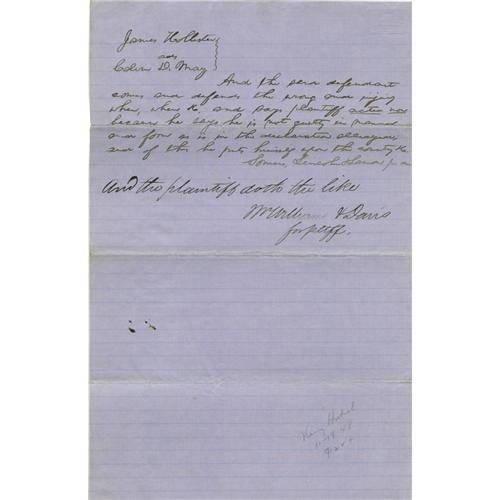 James Hollister
ads
Calvin D. May
And the said defendant
comes and defends the wrong and injury
when, where &c and says plaintiff actio non
because he says he is not guilty in manner
and form as in the declaration
and of this he puts himself upon the country &c
Lincoln
And the plaintiffs doth the like
McWilliams & Davis
for plff.